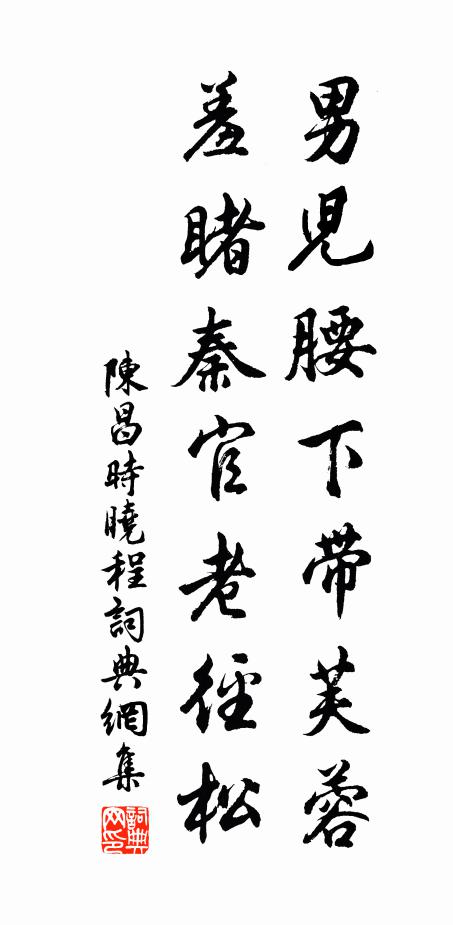 男兒腰下帶芙蓉
羞睹秦官老徑松
陳昌時曉程詞典網集
詞典网印